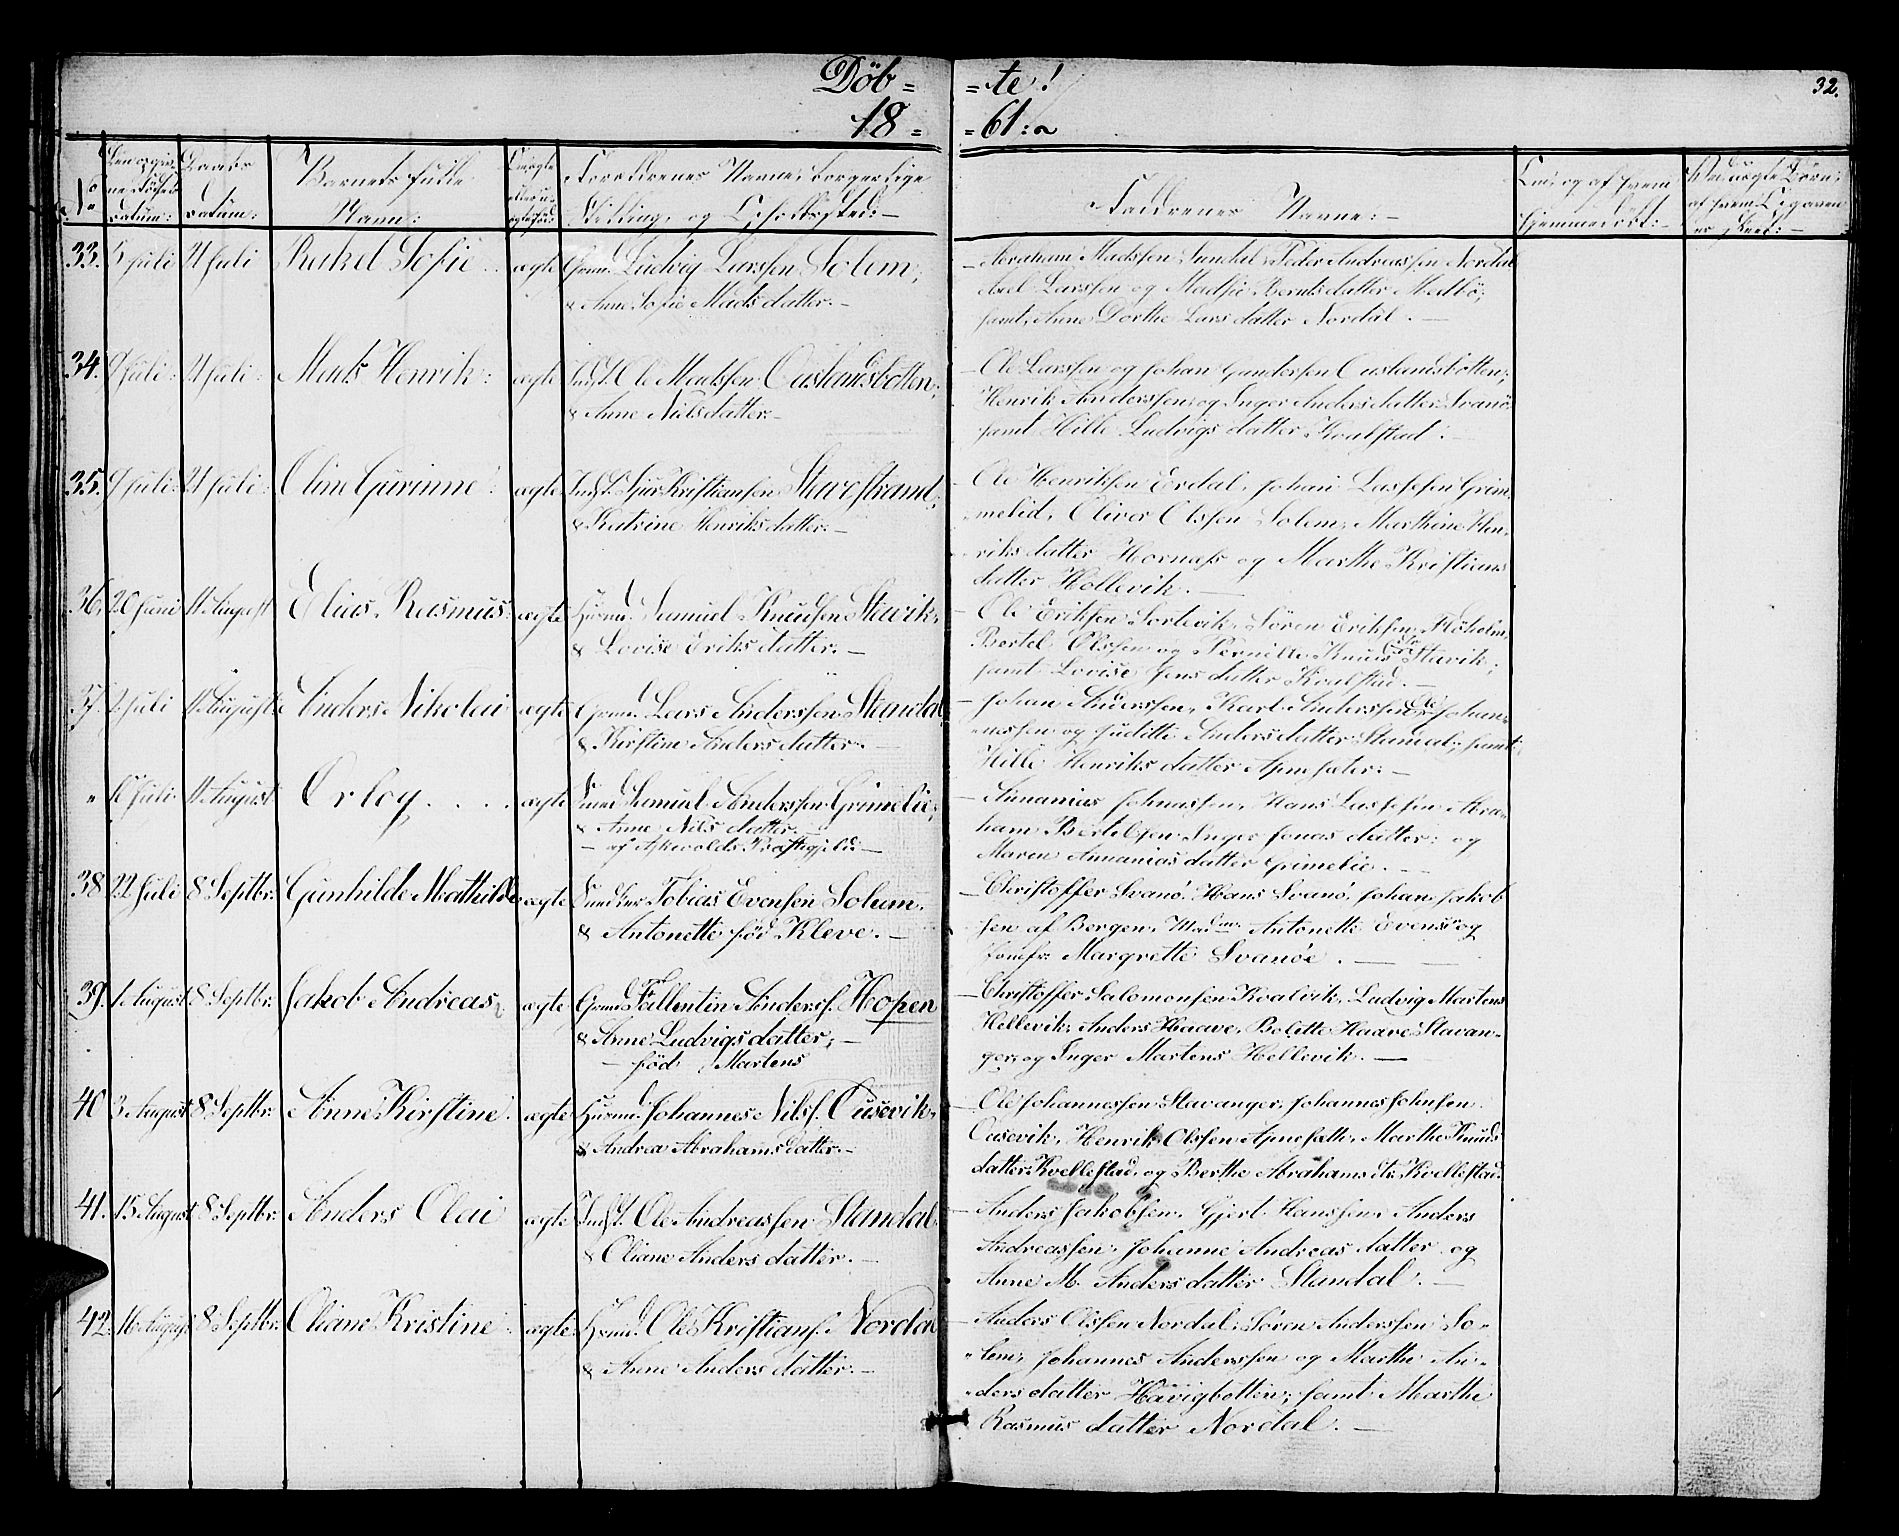 Döb= =te!
32.
18= =61:
No
Den opgivne Fødselsdatum:
Daabs datum:
Barnets fulde Navn:
Forældrenes Navne, borgerlige Stilling, og Opholdssted:
Faddrenes Navne:
33. 5 juli 21 juli Rakel Sofie ægte Grmd. Ludvig Larssen Solem,
& Anne Sofie Madsdatter.
Abraham Madssen Sandal, Peder Andreassen Nordal
Axel Larssen og Madsie Berntsdatter Medbö;
samt, Anne Dorthe Larsdatter Nordal.
34. 9 juli 21 juli Mads Henrik: ægte Indst. Ole Madssen Oustandsbotten;
& Anne Nielsdatter.
Ole Larssen og Johan Gundersen Oustandsbotten;
Henrik Anderssen og Inger Andersdatter Svanö
samt Hille Ludvigsdatter Kvalstad.
35. 9 juli 21 juli Oline Gurinne ægte Indst. Sjur Kristiansen Stavestrand;
& Katrine Henriksdatter.
Ole Henriksen Erdal, Johan Lassesen Grim-
melid, Oliver Olssen Solem, Marthine Hen-
riksdatter Hornæss og Marthe Kristians
datter Hollevik.
36. 20 Juni 11 August Elias Rasmus ægte Husmd. Samuel Knudsen Stavik
& Lovise Eriksdatter.
Ole Eriksen Sorlevik, Sören Eriksen Flöholm,
Bertel Olssen og Pernille Knuds Stavik;
samt Lovise Jensdatter Kvalstad.
37. 2 juli 11 August Anders Nikolai ægte Grmd. Lars Anderssen Standal
& Kirstine Andersdatter.
Johan Anderssen, Karl Anderssen, Ole Johan-
nessen og Juditte Andersdatter Standal; samt
Hille Henriksdatter Apnesæter.
" 10 juli 11 August Orlog ægte Samuel Anderssen Grimelie;
& Anne Nilsdatter.
af Askevolds Præstegjeld.
Annanias Johnassen, Hans Lassesen, Abra-
ham Bertelsen, Inger Jonasdatter og
Maren Annaniasdatter Grimelie.
38 22 juli 8 Septbr. Gunhilde Mathilde ægte Tobias Evensen Solum.
& Antonette föd Kleve.
Christoffer Svanö, Hans Svanö, Johan Jakob
sen af Bergen, Madm. Antonette Evens og
Jomfr. Margrette Svanöe.
39. 1 August 8 Septbr. Jakob Andreas ægte Grmd. Fallentin Anders. Hopen
& Anne Ludvigsdatter;
föd Martens
Christoffer Salomonsen Kvalvik, Ludvig Martens
Hellevik, Anders Haave, Bolette Haave Stavan-
ger, og Inger Martens Hellevik.
40 3 August 8 Septbr. Anne Kirstine. ægte Husmd. Johannes Nils. Ousevik,
& Andrea Abrahamsdatter.
Ole Johannessen Stavanger, Johannes Johnsen
Ousevik, Henrik Olssen Apnesæter, Marthe Knuds
datter Kvellestad, og Berthe Abrahamsdtr Kvellestad.
41. 15 August 8 Septbr. Anders Olai ægte Indst. Ole Andreassen Standal
& Oliane Andersdatter.
Anders Jakobsen, Gjert Hanssen, Anders
Andreassen, Johanne Andreasdatter og
Anne M. Andersdatter Standal.
42. 16 August 8 Septbr. Oliane Kristine ægte Husmd. Ole Kristians. Nordal
& Anne Andersdatter.
Anders Olssen Nordal, Sören Anderssen So-
lem, Johannes Anderssen og Marthe An-
dersdatter Havigbotten; samt Marthe
Rasmusdatter Nordal.